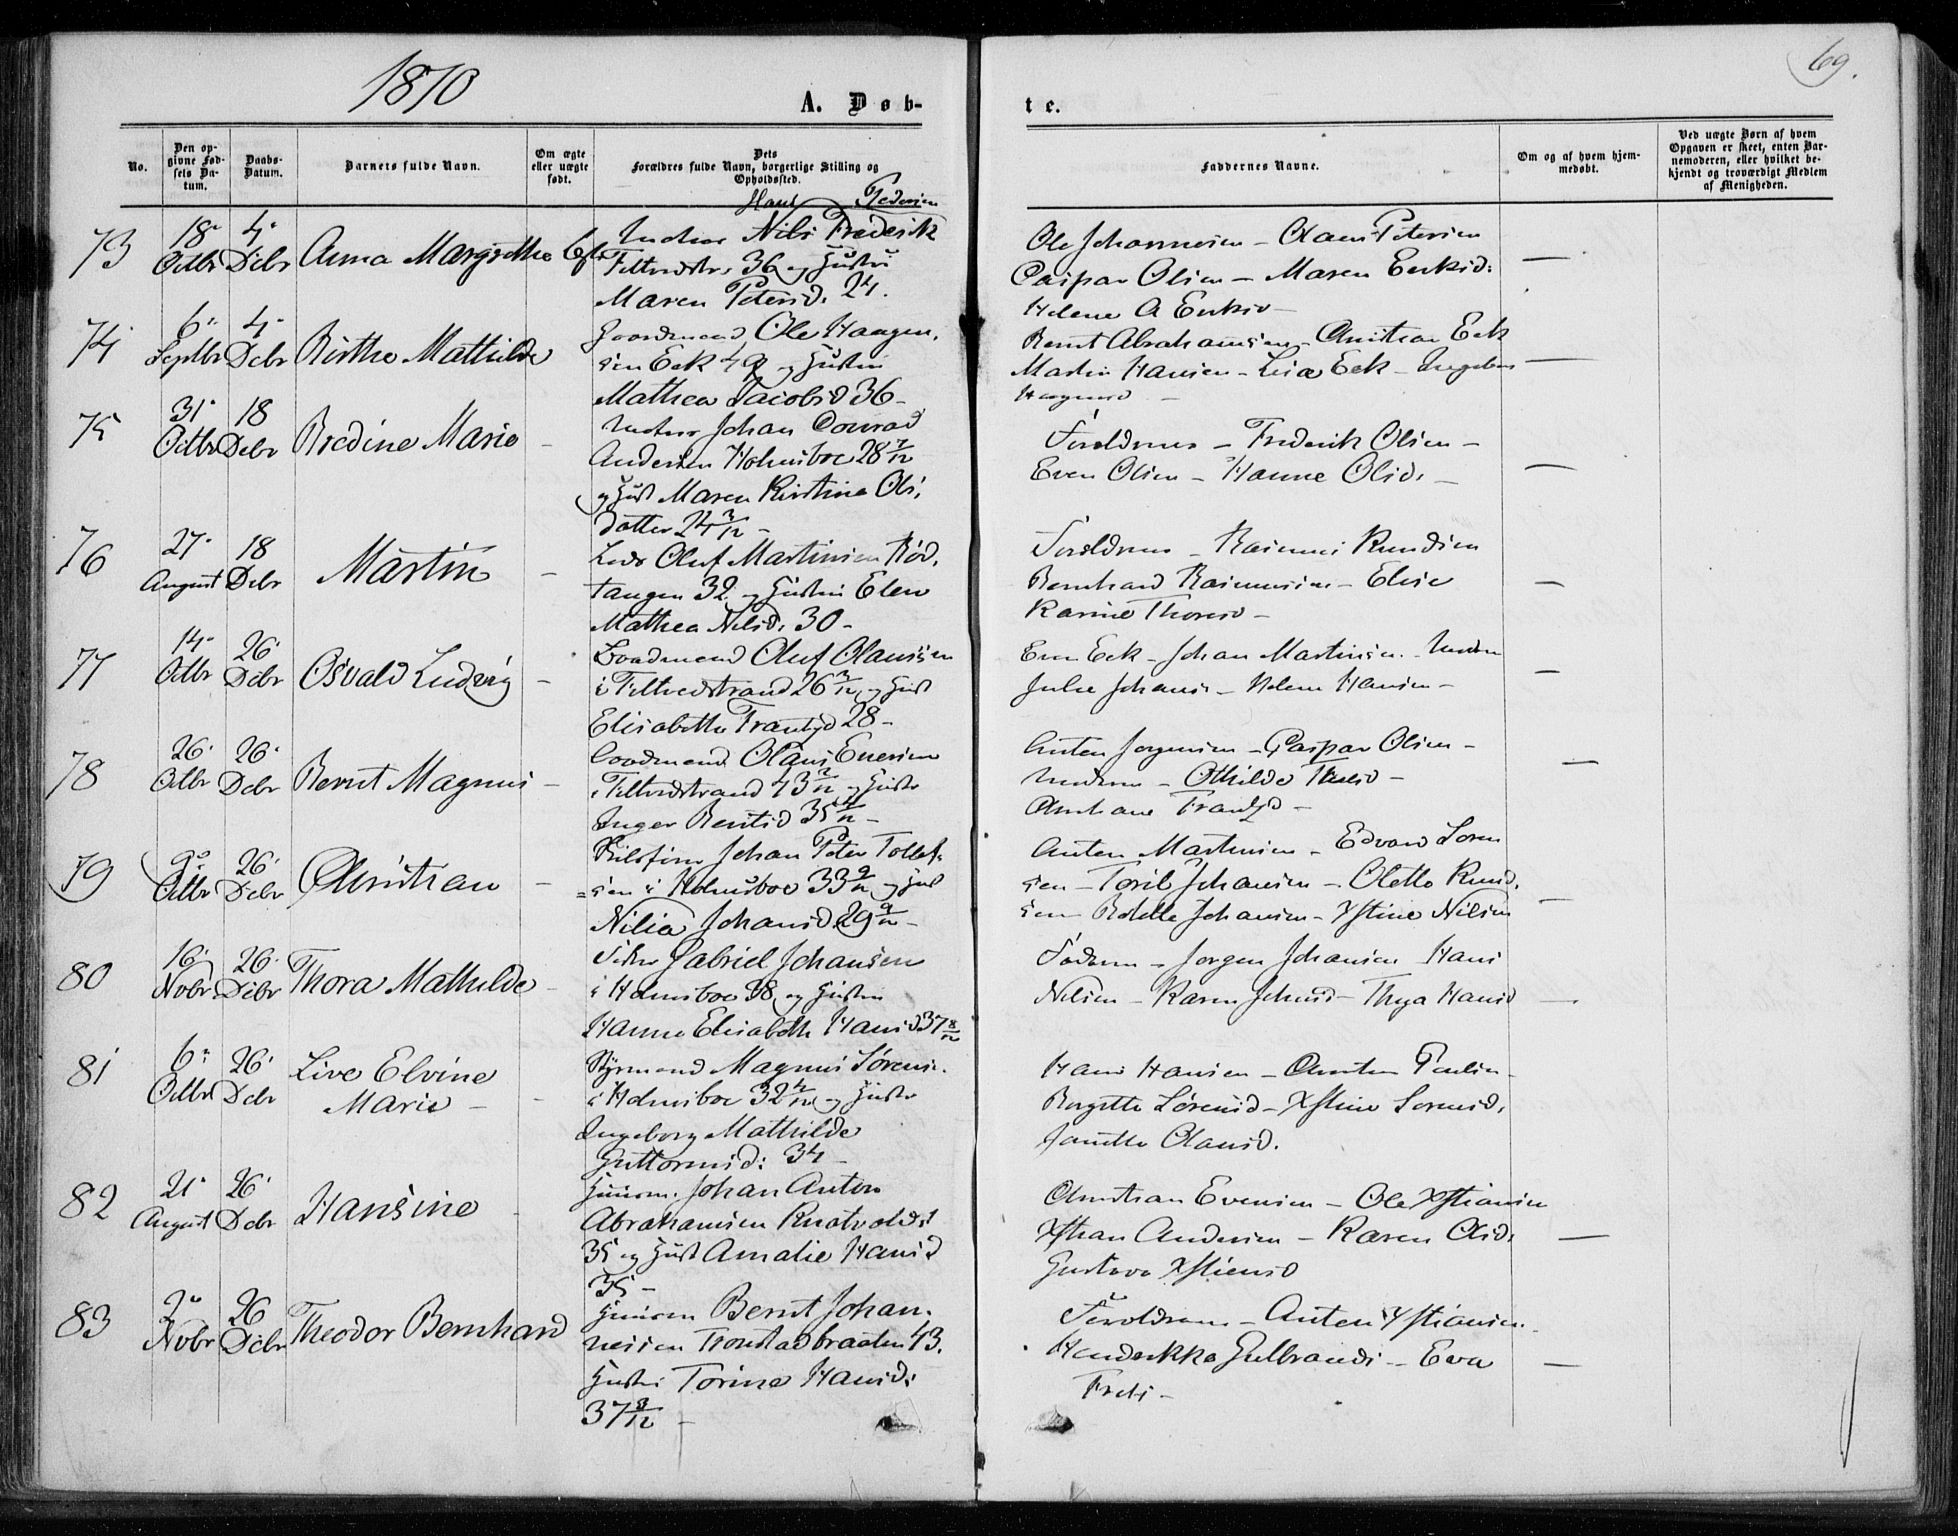 1870
69.
A. Døb-
te.
No.
Den op-
givne Fød-
sels Da-
tum.
Daabs-
Datum.
Barnets fulde Navn.
Om ægte
eller uægte
født.
Dets
Forældres fulde Navn, borgerlige Stilling og
Opholdssted.
Faddernes Navne.
Om og af hvem hjem-
medøbt.
Ved uægte Børn af hvem
Opgaven er skeet, enten Bar-
nemoderen, eller hvilket be-
kjendt og troværdigt Medlem
af Menigheden.
73
18
Octbr
4
Dcbr
Anna Margrethe
Hans
Nils Frederik
36 og Hustru
Maren Petersd. 24.
Ole Johannesen - Olaus Petersen
Caspar Olsen - Maren Eriksd:
Helene A Eriksd -
—
74
6
Septbr
4
Dcbr
Birthe Mathilde
Gaardmand Ole Haagen-
sen Eek 49 og Hustru
Mathea Jacobsd 36 -
Bernt Abrahamsen - Christian Eek
Martin Hansen - Lisa Eek -
—
75
31
Octbr
18
Dcbr
Bredine Marie
-
Johan Conrad
Andersen Holmsboe 28 7/12
og Hust Maren Kirstine Ols-
datter 24 3/12 -
Forældrene - Frederik Olsen -
Even Olsen - Hanne Olsd. -
—
76
27
August
18
Dcbr
Martin
-
Lods Oluf Martinsen Rød-
tangen 32 og Hustru Elen
Mathea Nilsd. 30 -
Forældrene - Rasmus Knudsen
Bernhard Rasmussen - Elise
Karine Thoresd -
—
77
14
Octbr
26
Dcbr
Osvald Ludvig
-
Baadmand Oluf Olaussen
i Toftvedstrand 26 3/12 og Hust
Elisabeth Frantzd 28 -
Even Eek - Johan Martinsen -
Julie Johans - Helene Hansen -
-
78
26
Octbr
26
Dcbr
Bernt Magnus
-
Baadmand Olaus Evensen
43 2/12 og Hustr
Inger Berntsd 35 4/12 -
Anten Jørgensen - Caspar Olsen -
- Othilde
Frantzd -
—
79
9
Octbr
26
Dcbr
Christian
-
Johan Peter Tollef-
sen i Holmsboe 33 9/12 og Hust
Nilia Johansd. 29 9/12 -
Anten Martinsen - Edvard Soren
sen - Toril Johansen - Olette Knud-
sen - Johansen - Xstine Nilsen
-
80
16
Novbr
26
Dcbr
Thora Mathilde
-
Fisker Gabriel Johansen
i Holmsboe 38 og Hustru
Hanne Elisabeth Hansd. 37 8/12
Faderen - Jørgen Johansen Hans
Nilsen - Karen Johansd - Thea Hansd
-
81
6
Octbr
26
Dcbr
Live Elvine
Marie -
-
Styrmand Magnus Sørens.
i Holmsboe 32 4/12 og Hustr
Ingeborg Mathilde
Guttormsd: 34 -
Hans Hansen -
Sørensd - Xstine Sørensd.
Janette Olausd.
82
21
August
26
Dcbr
Hansine
-
Huusm. Johan Anton
Abrahamsen Knatvolds
35 og Hust Amalie Hansd
35 -
Christian Evensen - Ole Xstiansen
Xthan Andersen - Karen Olsd.
Gustava Xstiensd
—
83
2
Novbr
26
Dcbr
Theodor Bernhard
Huusm Bernt Johan-
nessen Tronstadbraaten 43.
Hustru Torine Hansd.
37 8/12 -
Forældrene - Anten Xstiansen -
Hendrikke Gulbrands - Eva
Freds -
—